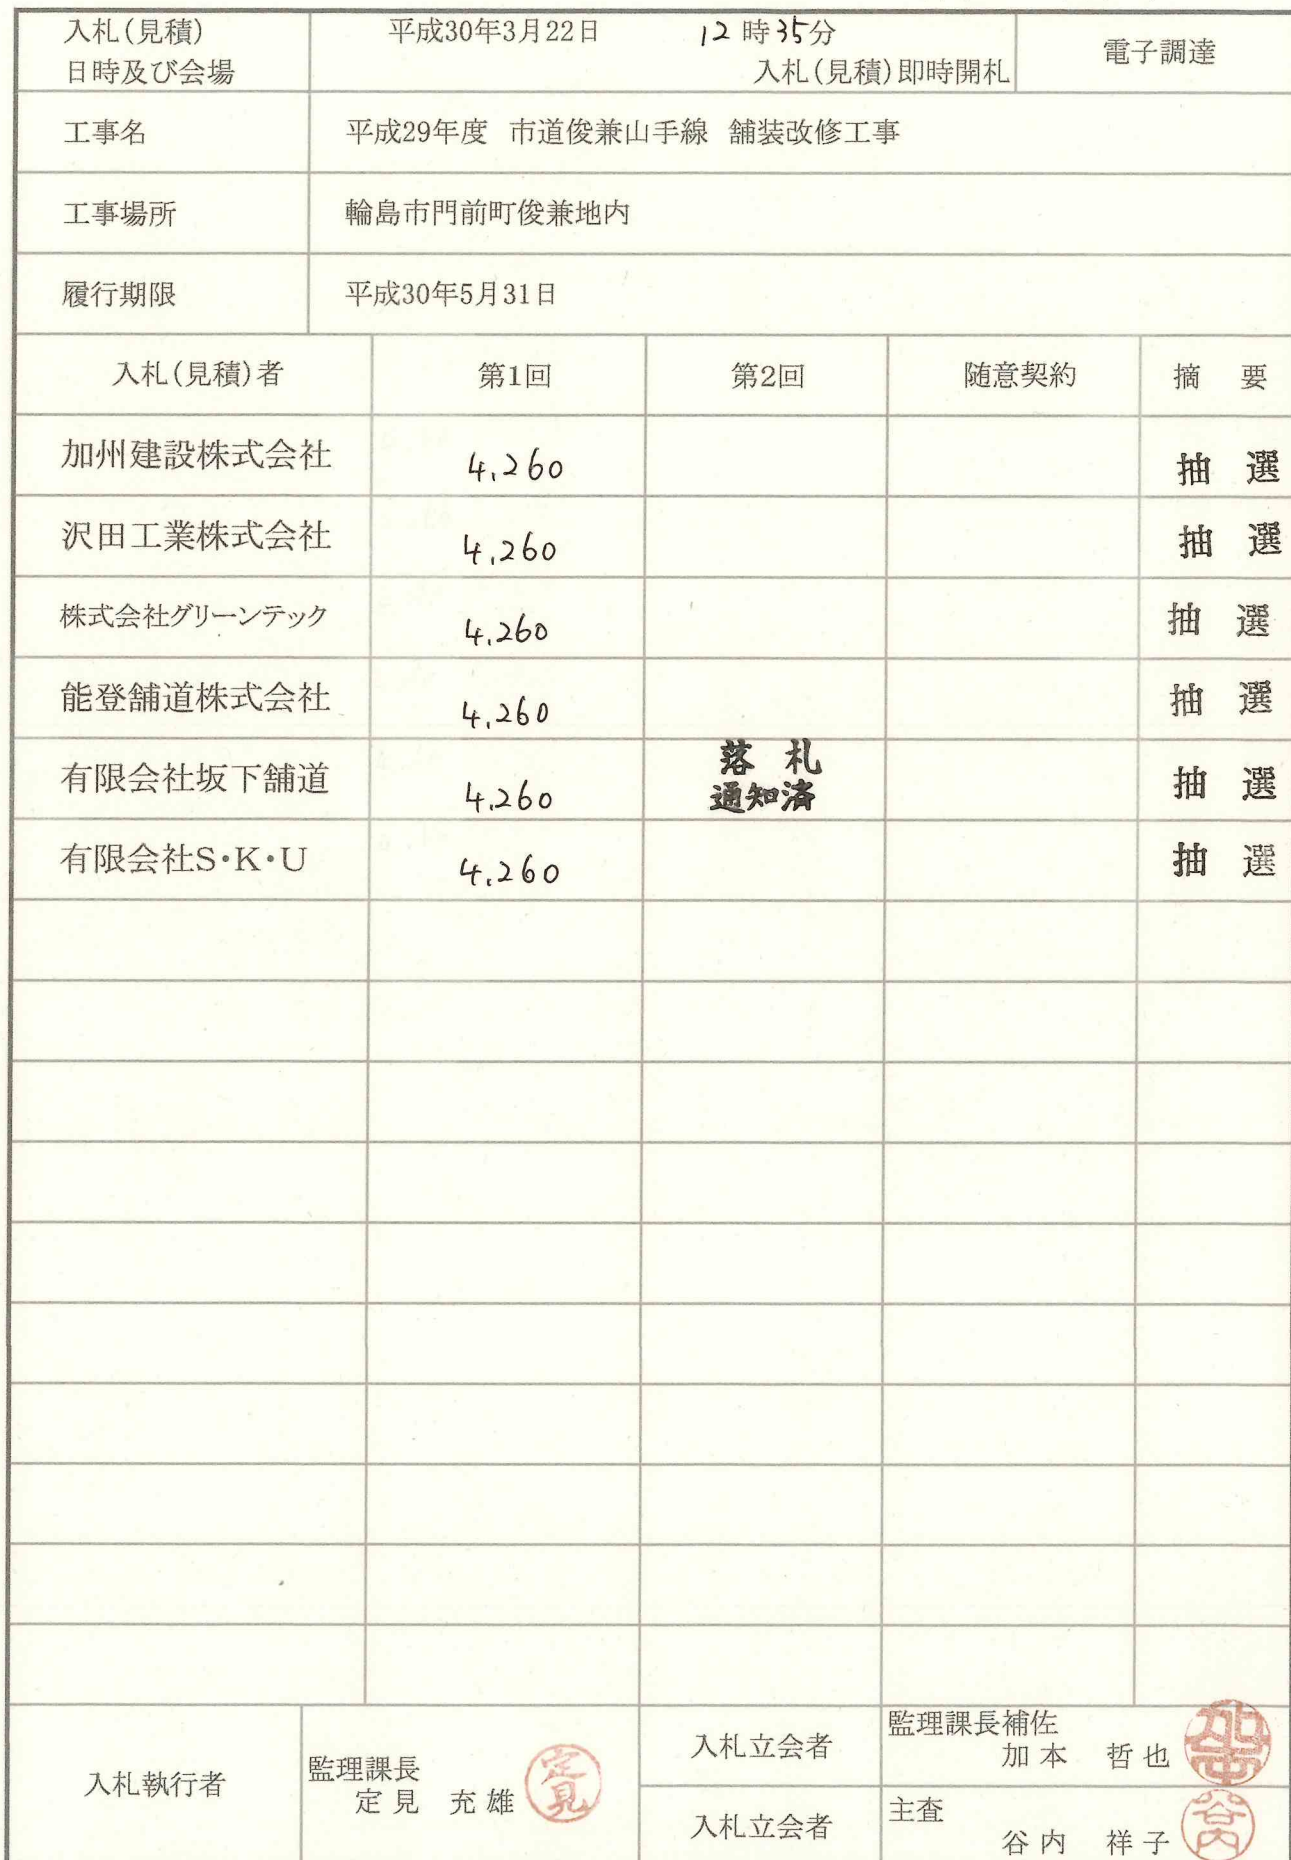 入札(見積)
日時及び会場
平成30年3月22日 12時35分
入札(見積)即時開札
電子調達
工事名 平成29年度 市道俊兼山手線 舗装改修工事
工事場所 輪島市門前町俊兼地内
履行期限 平成30年5月31日
入札(見積)者 第1回 第2回 随意契約 摘 要
加州建設株式会社 4,260 抽 選
沢田工業株式会社 4,260 抽 選
株式会社グリーンテック 4,260 抽 選
能登舗道株式会社 4,260 抽 選
有限会社坂下舗道 4,260 落 札 抽 選
通知済
有限会社S・K・U 4,260 抽 選
入札執行者
監理課長
定見 充雄 定見
入札立会者
監理課長補佐
加本 哲也
入札立会者
主査
谷内 祥子 谷内